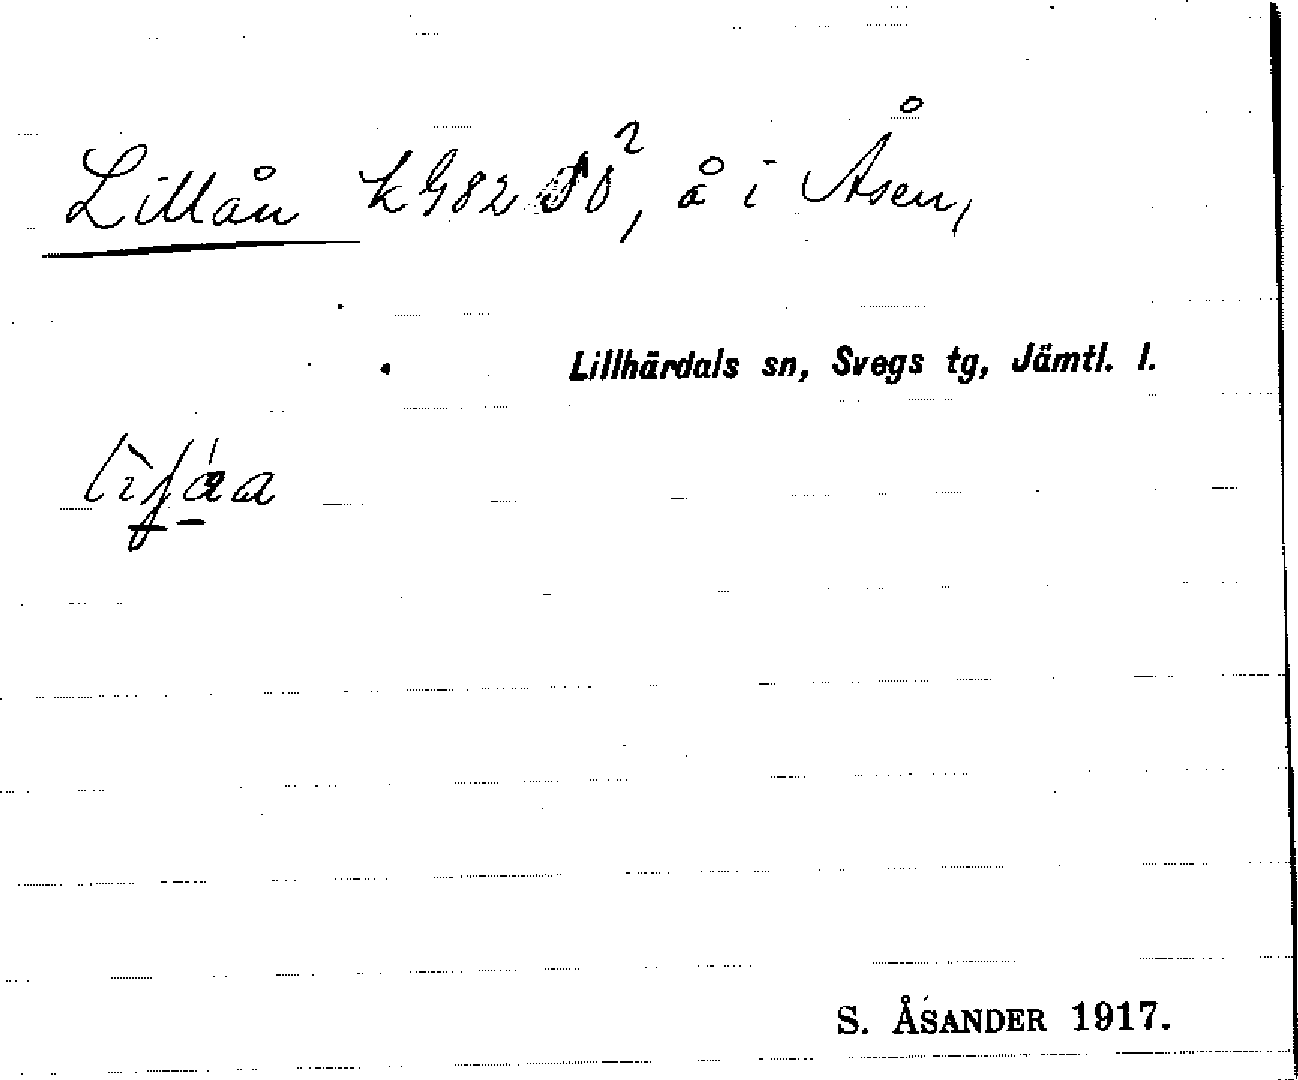 Lillån kG82 SO², å i Åsen,
Lillhärdals sn, Svegs tg, Jämtl. l.
S. ÅSANDER 1917.